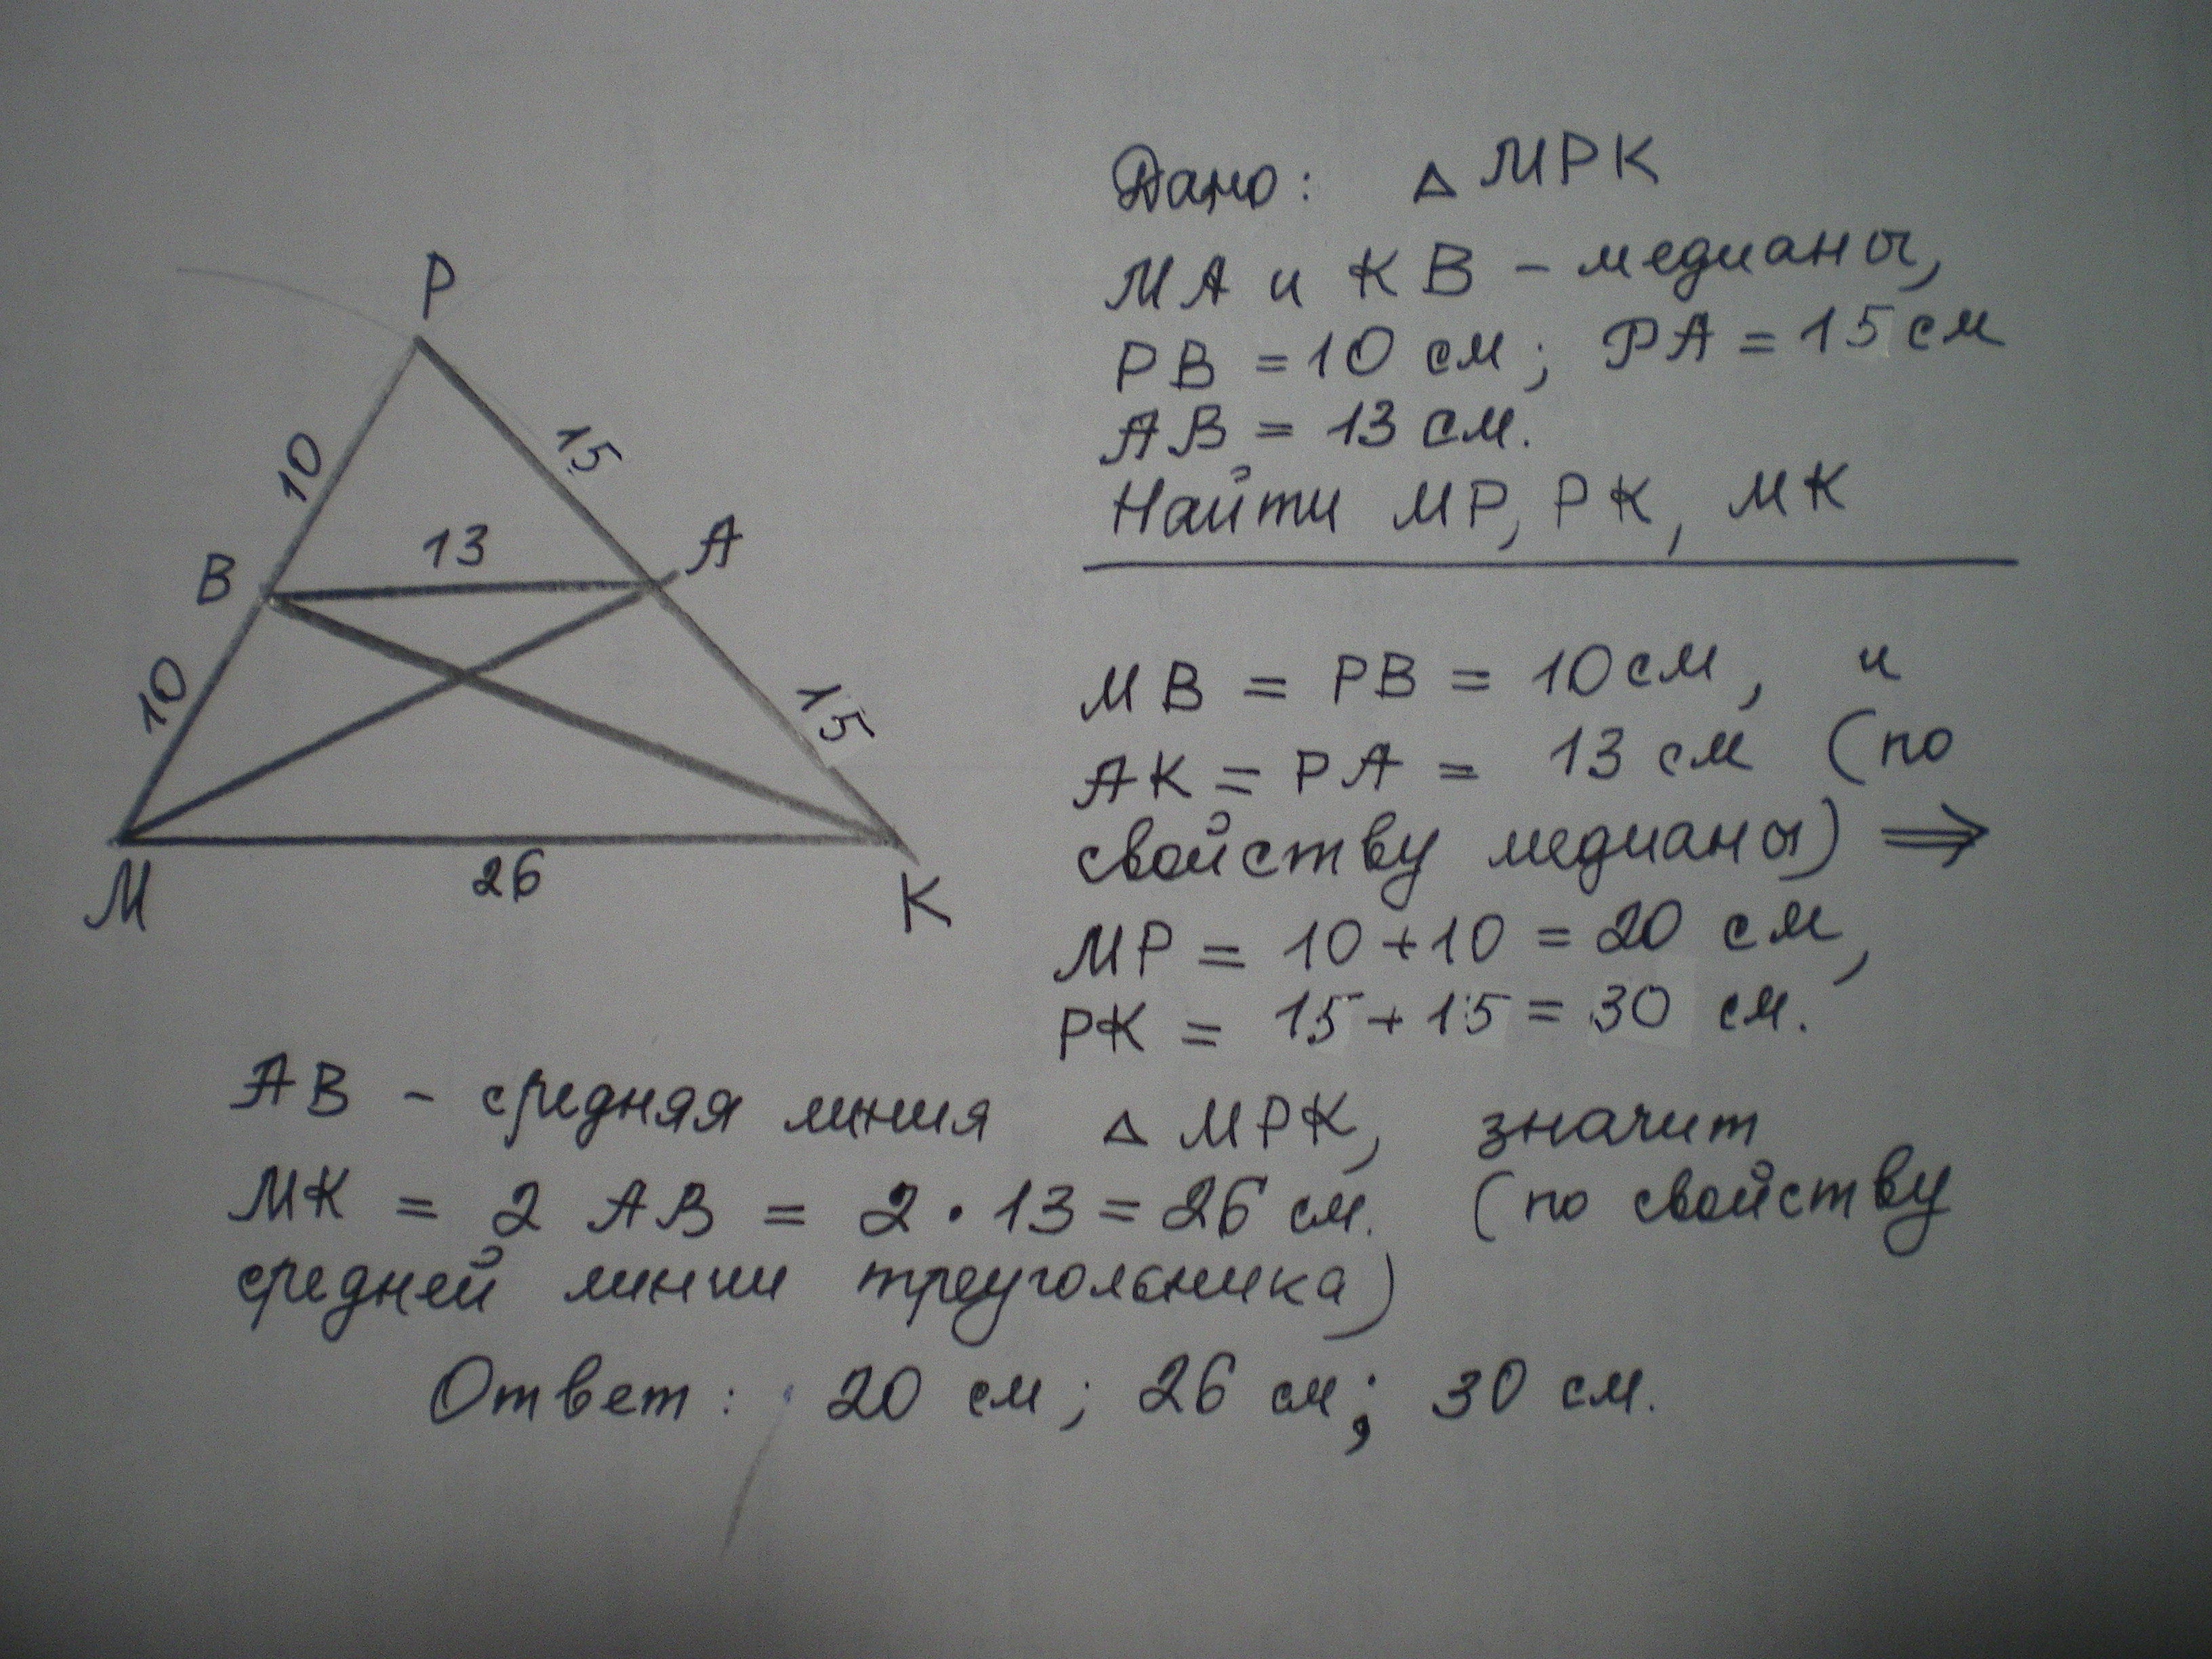 P
10
15
B
13
A
10
15
M
26
K
Дано: △ MPK
MA и KB – медианы,
PB = 10 см; PA = 15 см
AB = 13 см.
Найти MP, PK, MK
MB = PB = 10 см, и
AK = PA = 13 см (по
свойству медианы) ⇒
MP = 10 + 10 = 20 см,
PK = 15 + 15 = 30 см.
AB – средняя линия △ MPK, значит
MK = 2 AB = 2 · 13 = 26 см. (по свойству
средней линии треугольника)
Ответ: 20 см; 26 см; 30 см.